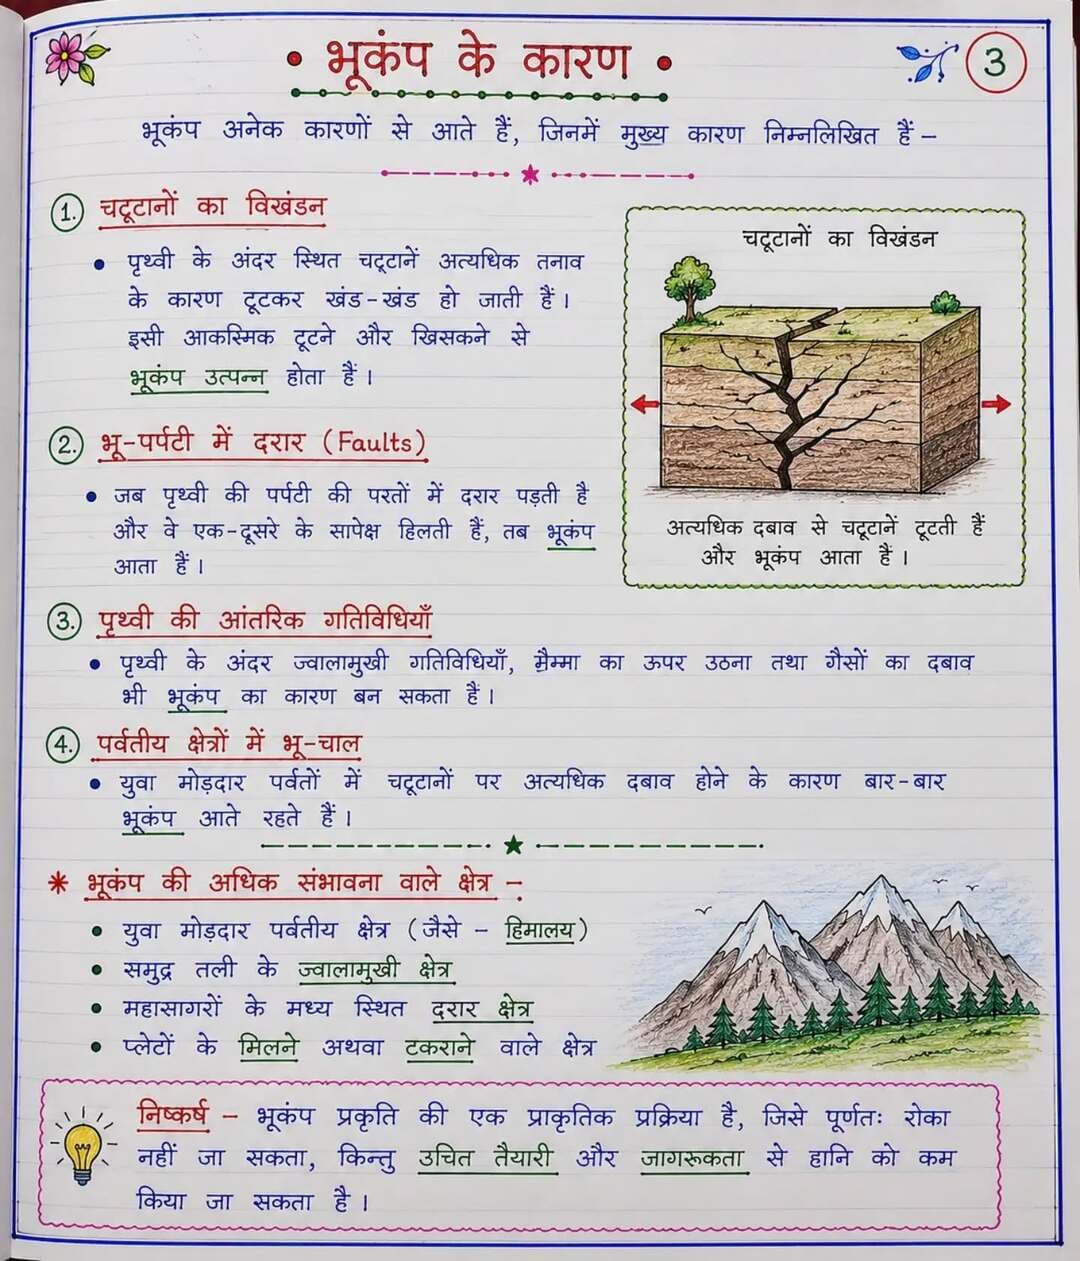 3
• भूकंप के कारण •
भूकंप अनेक कारणों से आते हैं, जिनमें मुख्य कारण निम्नलिखित हैं –
1. चटूटानों का विखंडन
• पृथ्वी के अंदर स्थित चटूटानें अत्यधिक तनाव
के कारण टूटकर खंड-खंड हो जाती हैं।
इसी आकस्मिक टूटने और खिसकने से
भूकंप उत्पन्न होता हैं।
चटूटानों का विखंडन
अत्यधिक दबाव से चटूटानें टूटती हैं
और भूकंप आता हैं।
2. भू-पर्पटी में दरार (Faults)
• जब पृथ्वी की पर्पटी की परतों में दरार पड़ती है
और वे एक-दूसरे के सापेक्ष हिलती हैं, तब भूकंप
आता हैं।
3. पृथ्वी की आंतरिक गतिविधियाँ
• पृथ्वी के अंदर ज्वालामुखी गतिविधियाँ, का ऊपर उठना तथा गैसों का दबाव
भी भूकंप का कारण बन सकता हैं।
4. पर्वतीय क्षेत्रों में भू-चाल
• युवा मोड़दार पर्वतों में चटूटानों पर अत्यधिक दबाव होने के कारण बार-बार
भूकंप आते रहते हैं।
* भूकंप की अधिक संभावना वाले क्षेत्र –
• युवा मोड़दार पर्वतीय क्षेत्र (जैसे – हिमालय)
• समुद्र तली के ज्वालामुखी क्षेत्र
• महासागरों के मध्य स्थित दरार क्षेत्र
• प्लेटों के मिलने अथवा टकराने वाले क्षेत्र
निष्कर्ष – भूकंप प्रकृति की एक प्राकृतिक प्रक्रिया है, जिसे पूर्णतः रोका
नहीं जा सकता, किन्तु उचित तैयारी और जागरूकता से हानि को कम
किया जा सकता है।